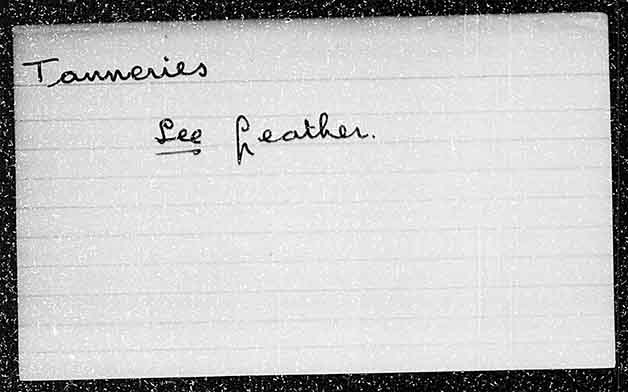 Tanneries
See Leather.